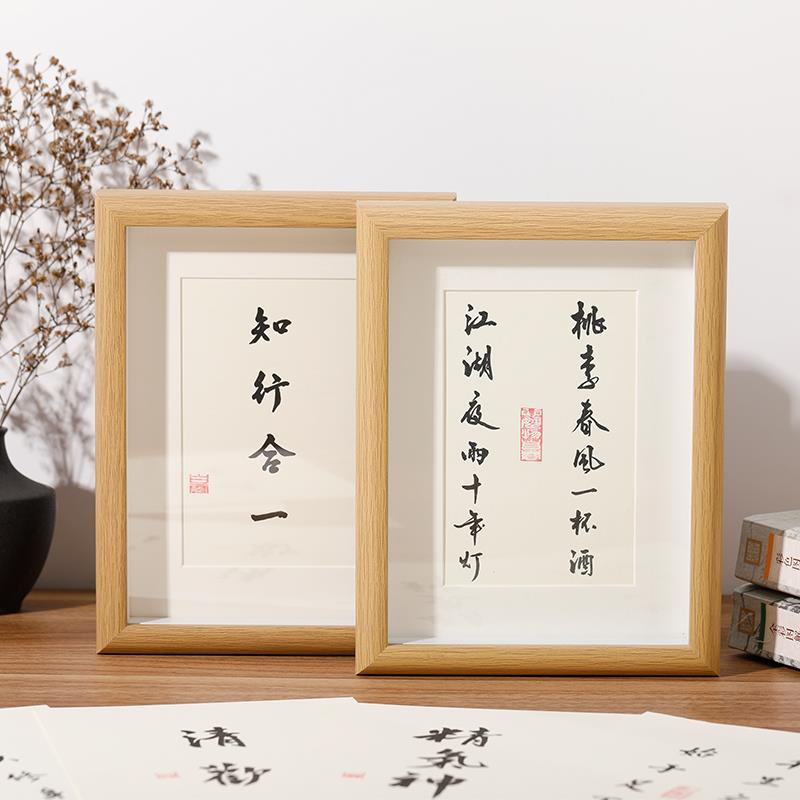 知行合一
桃李春风一杯酒
江湖夜雨十年灯
清歡
精氣神